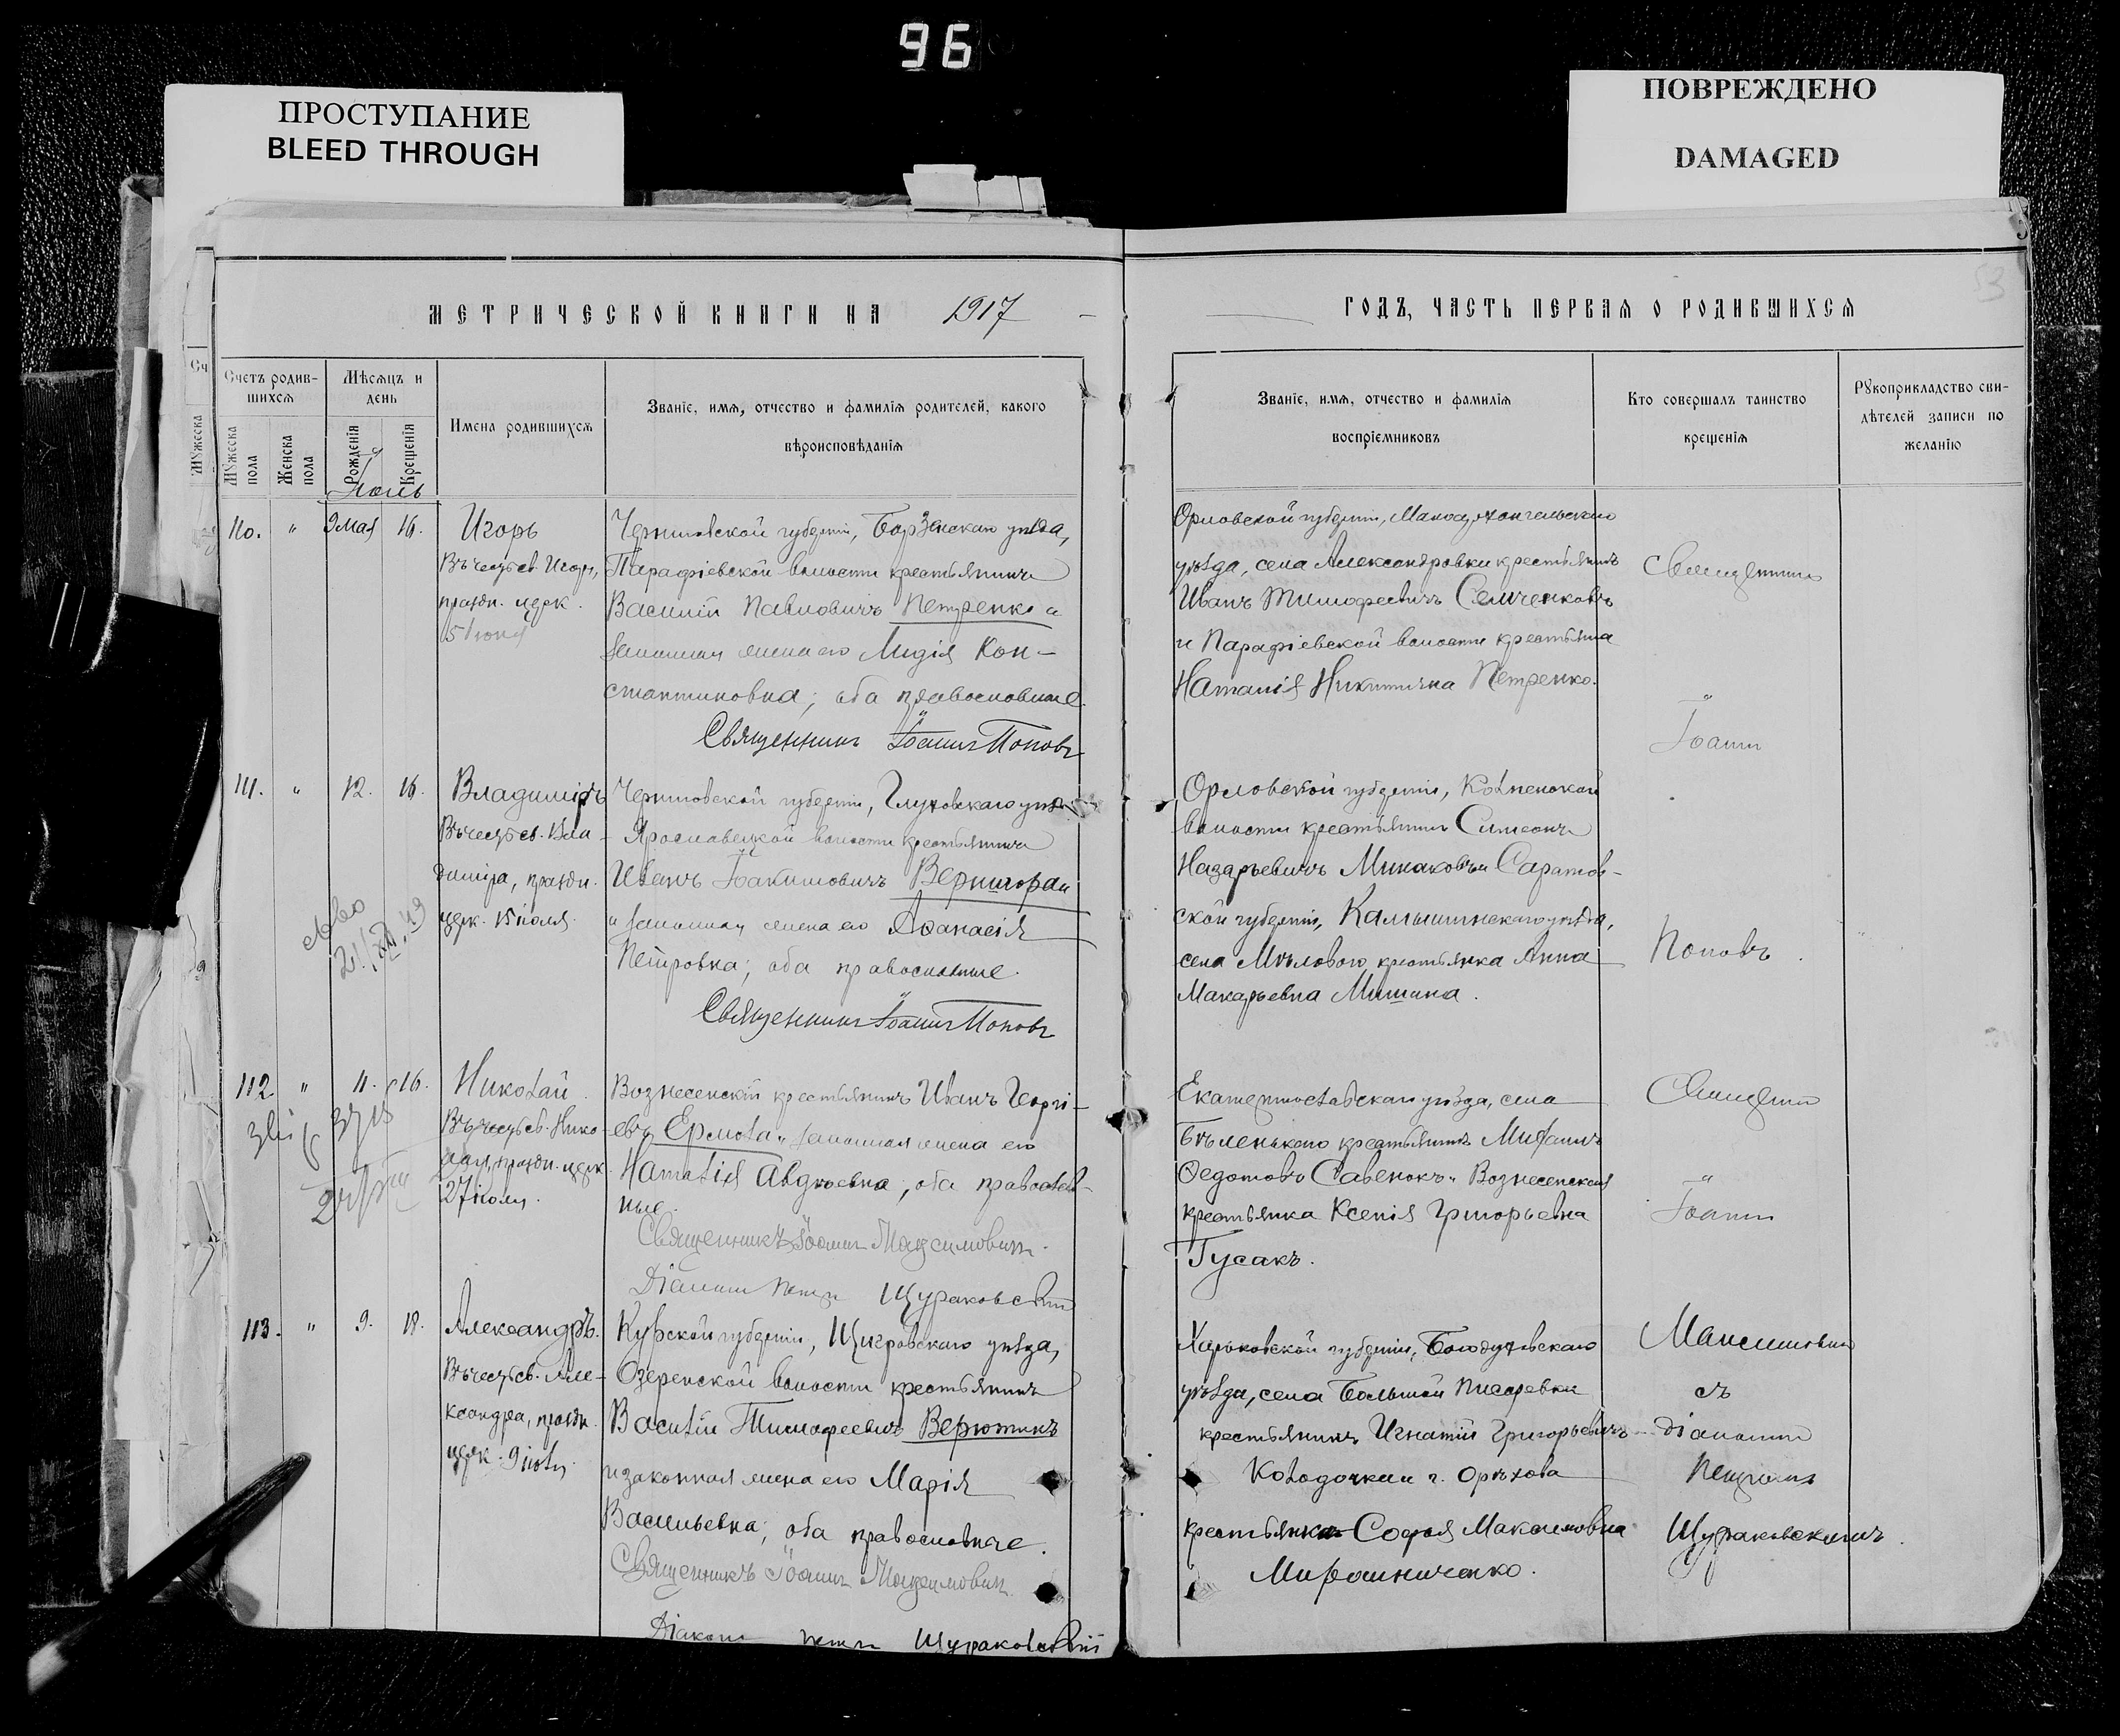 96
ПРОСТУПАНИЕ
BLEED THROUGH
ПОВРЕЖДЕНО
DAMAGED
53
МЕТРИЧЕСКОЙ КНИГИ НА 1917
ГОДЪ, ЧАСТЬ ПЕРВАЯ О РОДИВШИХСЯ
Сч
Мужеска
Счетъ родив-
шихся
Мужеска пола
Женска пола
Мѣсяцъ и
день
Рожденія
Крещенія
Имена родившихся
Званіе, имя, отчество и фамилія родителей, какого
вѣроисповѣданія
Званіе, имя, отчество и фамилія
воспріемниковъ
Кто совершалъ таинство
крещенія
Рукоприкладство сви-
дѣтелей записи по
желанію
110. " 9 мая 16.
Игорь
Въ честь св. Игоря,
праздн. церк.
5 іюня
Черниговской губерніи, Борзенскаго уѣзда,
Парафіевской волости крестьянинъ
Василій Павловичъ Петренко и
законная жена его Лидія Кон-
стантиновна; оба православные.
Священникъ Іоаннъ Поповъ
Орловской губерніи, Малоархангельскаго
уѣзда, села Александровки крестьянинъ
Иванъ Тимофеевичъ Семченковъ
и Парафіевской волости крестьянка
Наталія Никитична Петренко.
Священникъ
Іоаннъ
111. " 12. 16.
Владиміръ
Въ честь св. Вла-
диміра, праздн.
церк. 15 іюля.
Черниговской губерніи, Глуховскаго уѣзда
Ярославецкой волости крестьянинъ
Иванъ Іоакимовичъ
и законная жена его Аѳанасія
Петровна; оба православные.
Священникъ Іоаннъ Поповъ
Орловской губерніи,
волости крестьянинъ Симеонъ
Назарьевичъ Минаковъ и Саратов-
ской губерніи, Камышинскаго уѣзда,
села Мѣлового крестьянка Анна
Макарьевна Мишина.
Поповъ
112 " 11. 16.
Николай.
Въ честь св. Нико-
лая, праздн. церк.
27 іюля.
Вознесенскій крестьянинъ Иванъ Георгі-
евъ Ермола и законная жена его
Наталія Авдѣевна, оба православ-
ные.
Священникъ Іоаннъ Максимовичъ.
Діаконъ Петръ Щураковскій
Екатеринославскаго уѣзда, села
Бѣленькаго крестьянинъ
Ѳедотовъ Савенокъ и Вознесенская
крестьянка Ксенія Григорьевна
Гусакъ.
Священникъ
Іоаннъ
113. " 9. 18.
Александръ.
Въ честь св. Але-
ксандра, праздн.
церк. 9 іюля.
Курской губерніи, Щигровскаго уѣзда,
Озеренской волости крестьянинъ
Василій Тимофеевичъ Верютинъ
и законная жена его Марія
Васильевна; оба православные.
Священникъ Іоаннъ Максимовичъ
Діаконъ Петръ Щураковскій
Харьковской губерніи, Богодуховскаго
уѣзда, села Большой Писаревки
крестьянинъ Игнатій Григорьевичъ
Колодочкинъ г. Орѣхова
крестьянка Софія Максимовна
Мирошниченко.
Максимовичъ
съ
діакономъ
Петромъ
Щураковскимъ.